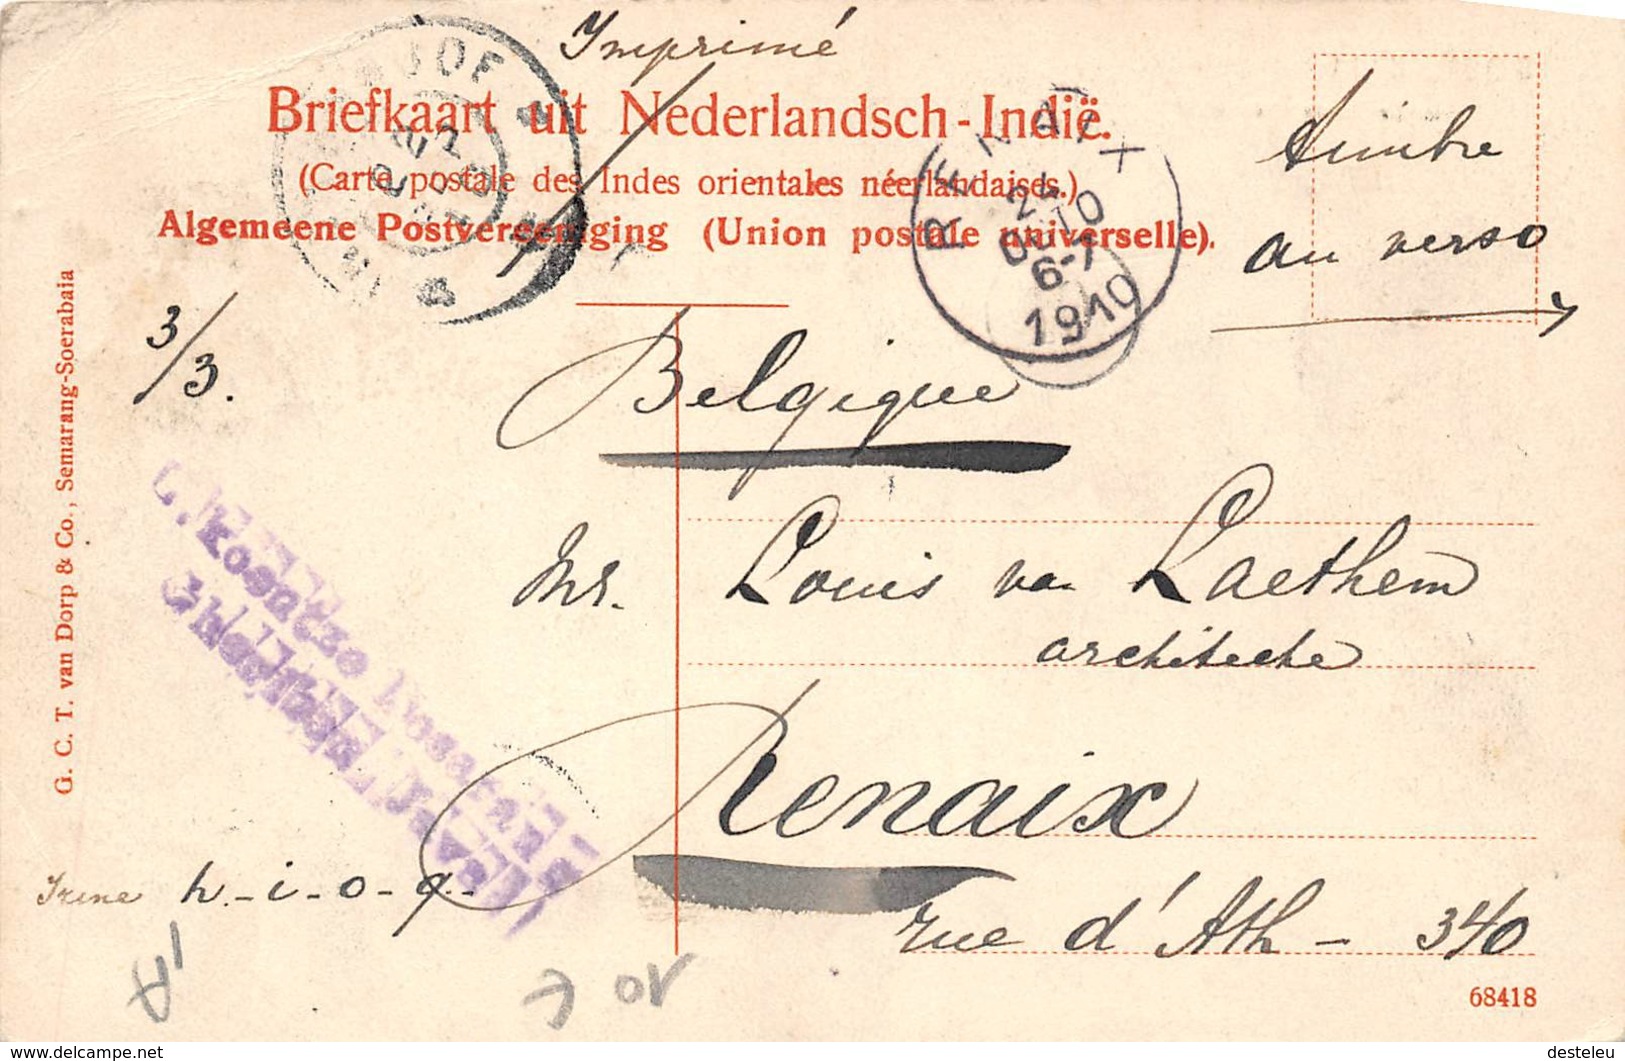 Imprimé
Briefkaart uit Nederlandsch-Indië.
(Carte postale des Indes orientales néerlandaises.)
Algemeene Postvereeniging (Union postale universelle).
Timbre
au verso
RENAIX
24
10
6-7
1910
3/3.
Belgique
Mr. Louis van Laethem
architecte
Renaix
rue d'Ath - 340
Irene h.-i-o-q-
G. C. T. van Dorp & Co., Semarang-Soerabaia
68418
www.delcampe.net
desteleu